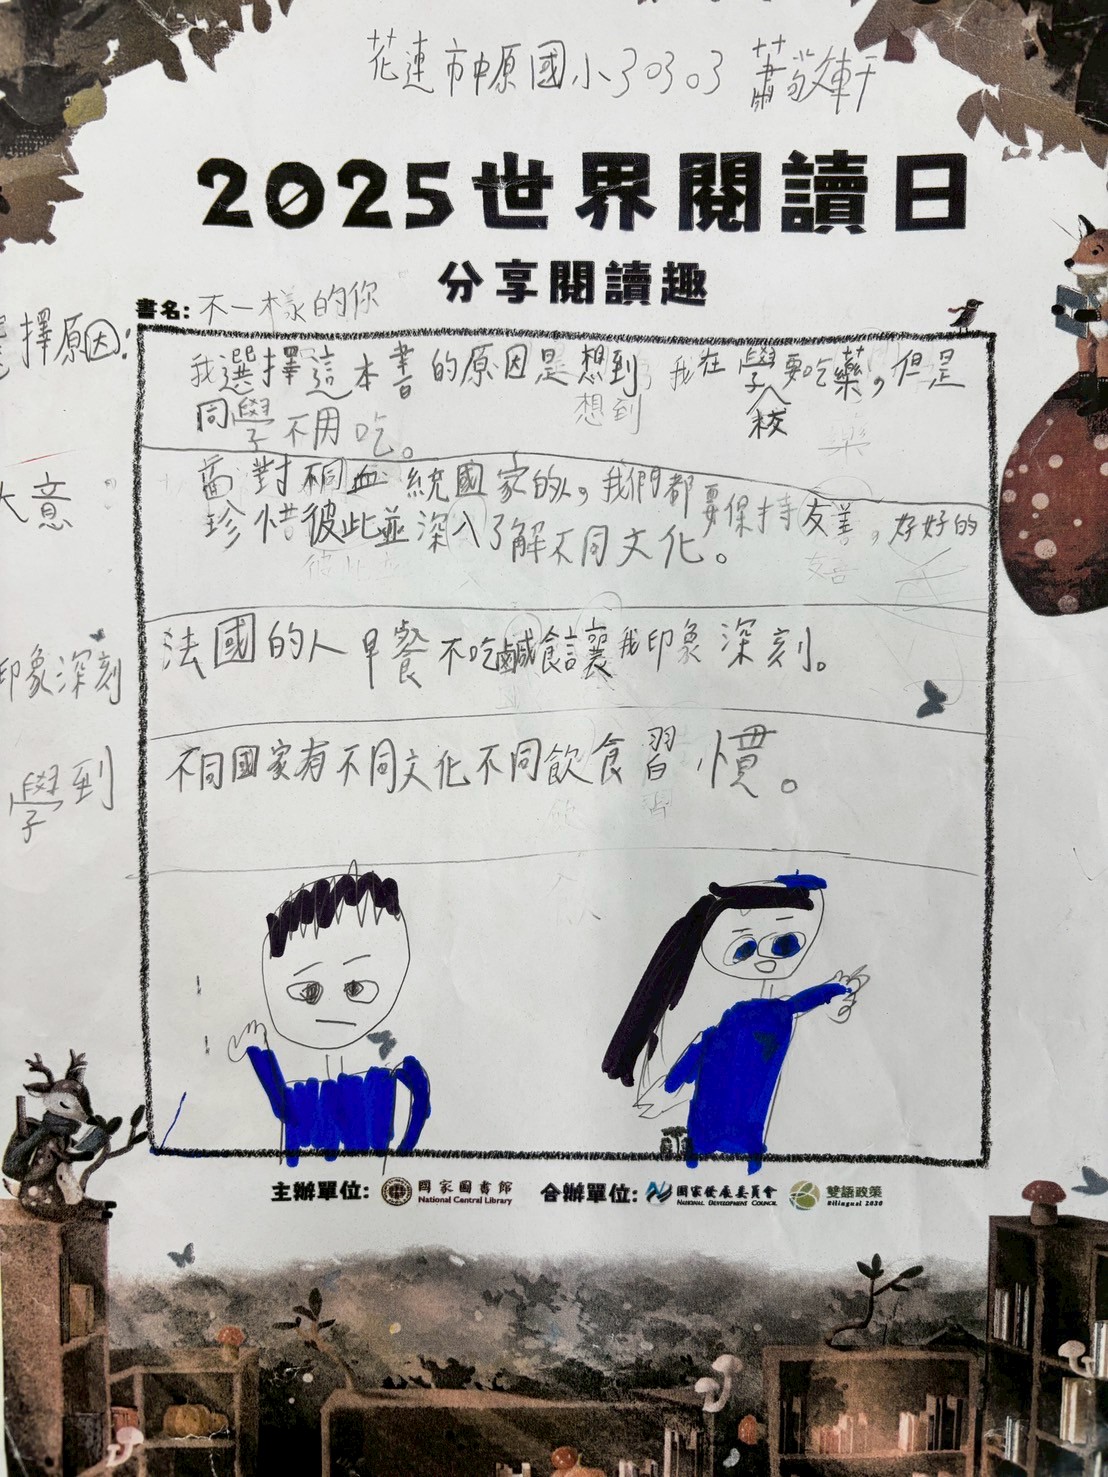 花蓮市中原國小30303 蕭敬軒
2025世界閱讀日
分享閱讀趣
書名: 不一樣的你
選擇原因:
我選擇這本書的原因是想到我在學校要吃藥,但是
想到
同學不用吃。
大意
當對不同血統國家的人,我們都要保持友善,好好的
珍惜彼此並深入了解不同文化。
彼此並
友善
印象深刻
法國的人早餐不吃鹹食讓我印象深刻。
學到
不同國家有不同文化不同飲食習慣。
主辦單位: 國家圖書館 National Central Library 合辦單位: 國家發展委員會 National Development Council 雙語政策 Bilingual 2030